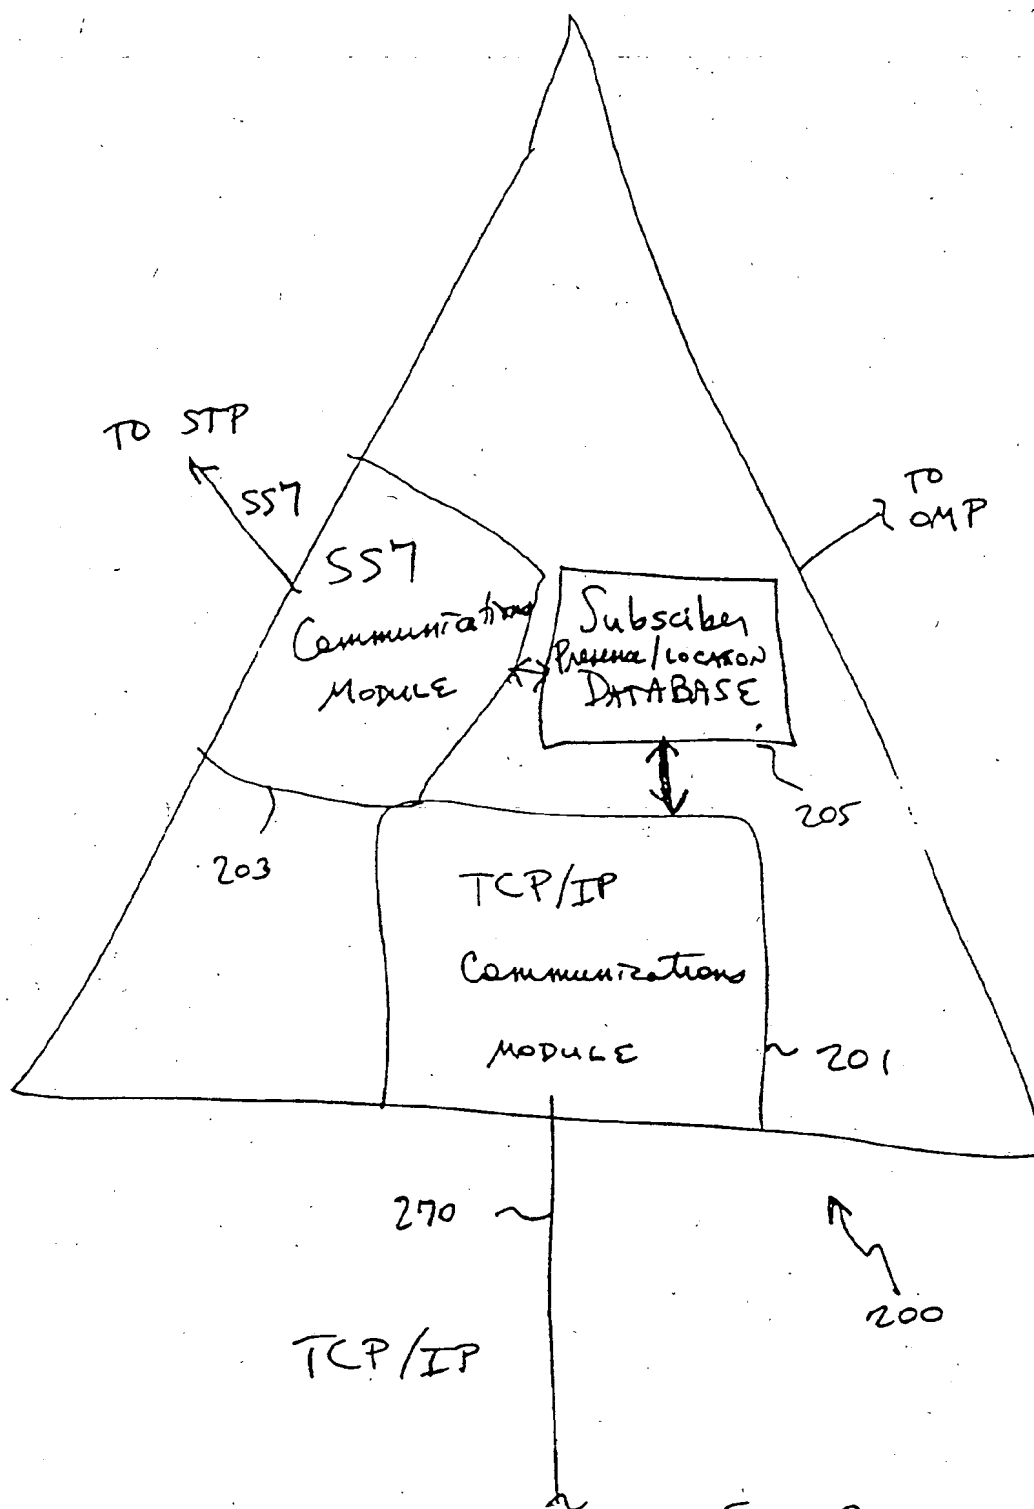 TO STP
SS7
SS7
Communications
MODULE
TO
OMP
Subsciber
Presence/LOCATION
DATABASE
205
203
TCP/IP
Communications
MODULE
201
270
200
TCP/IP